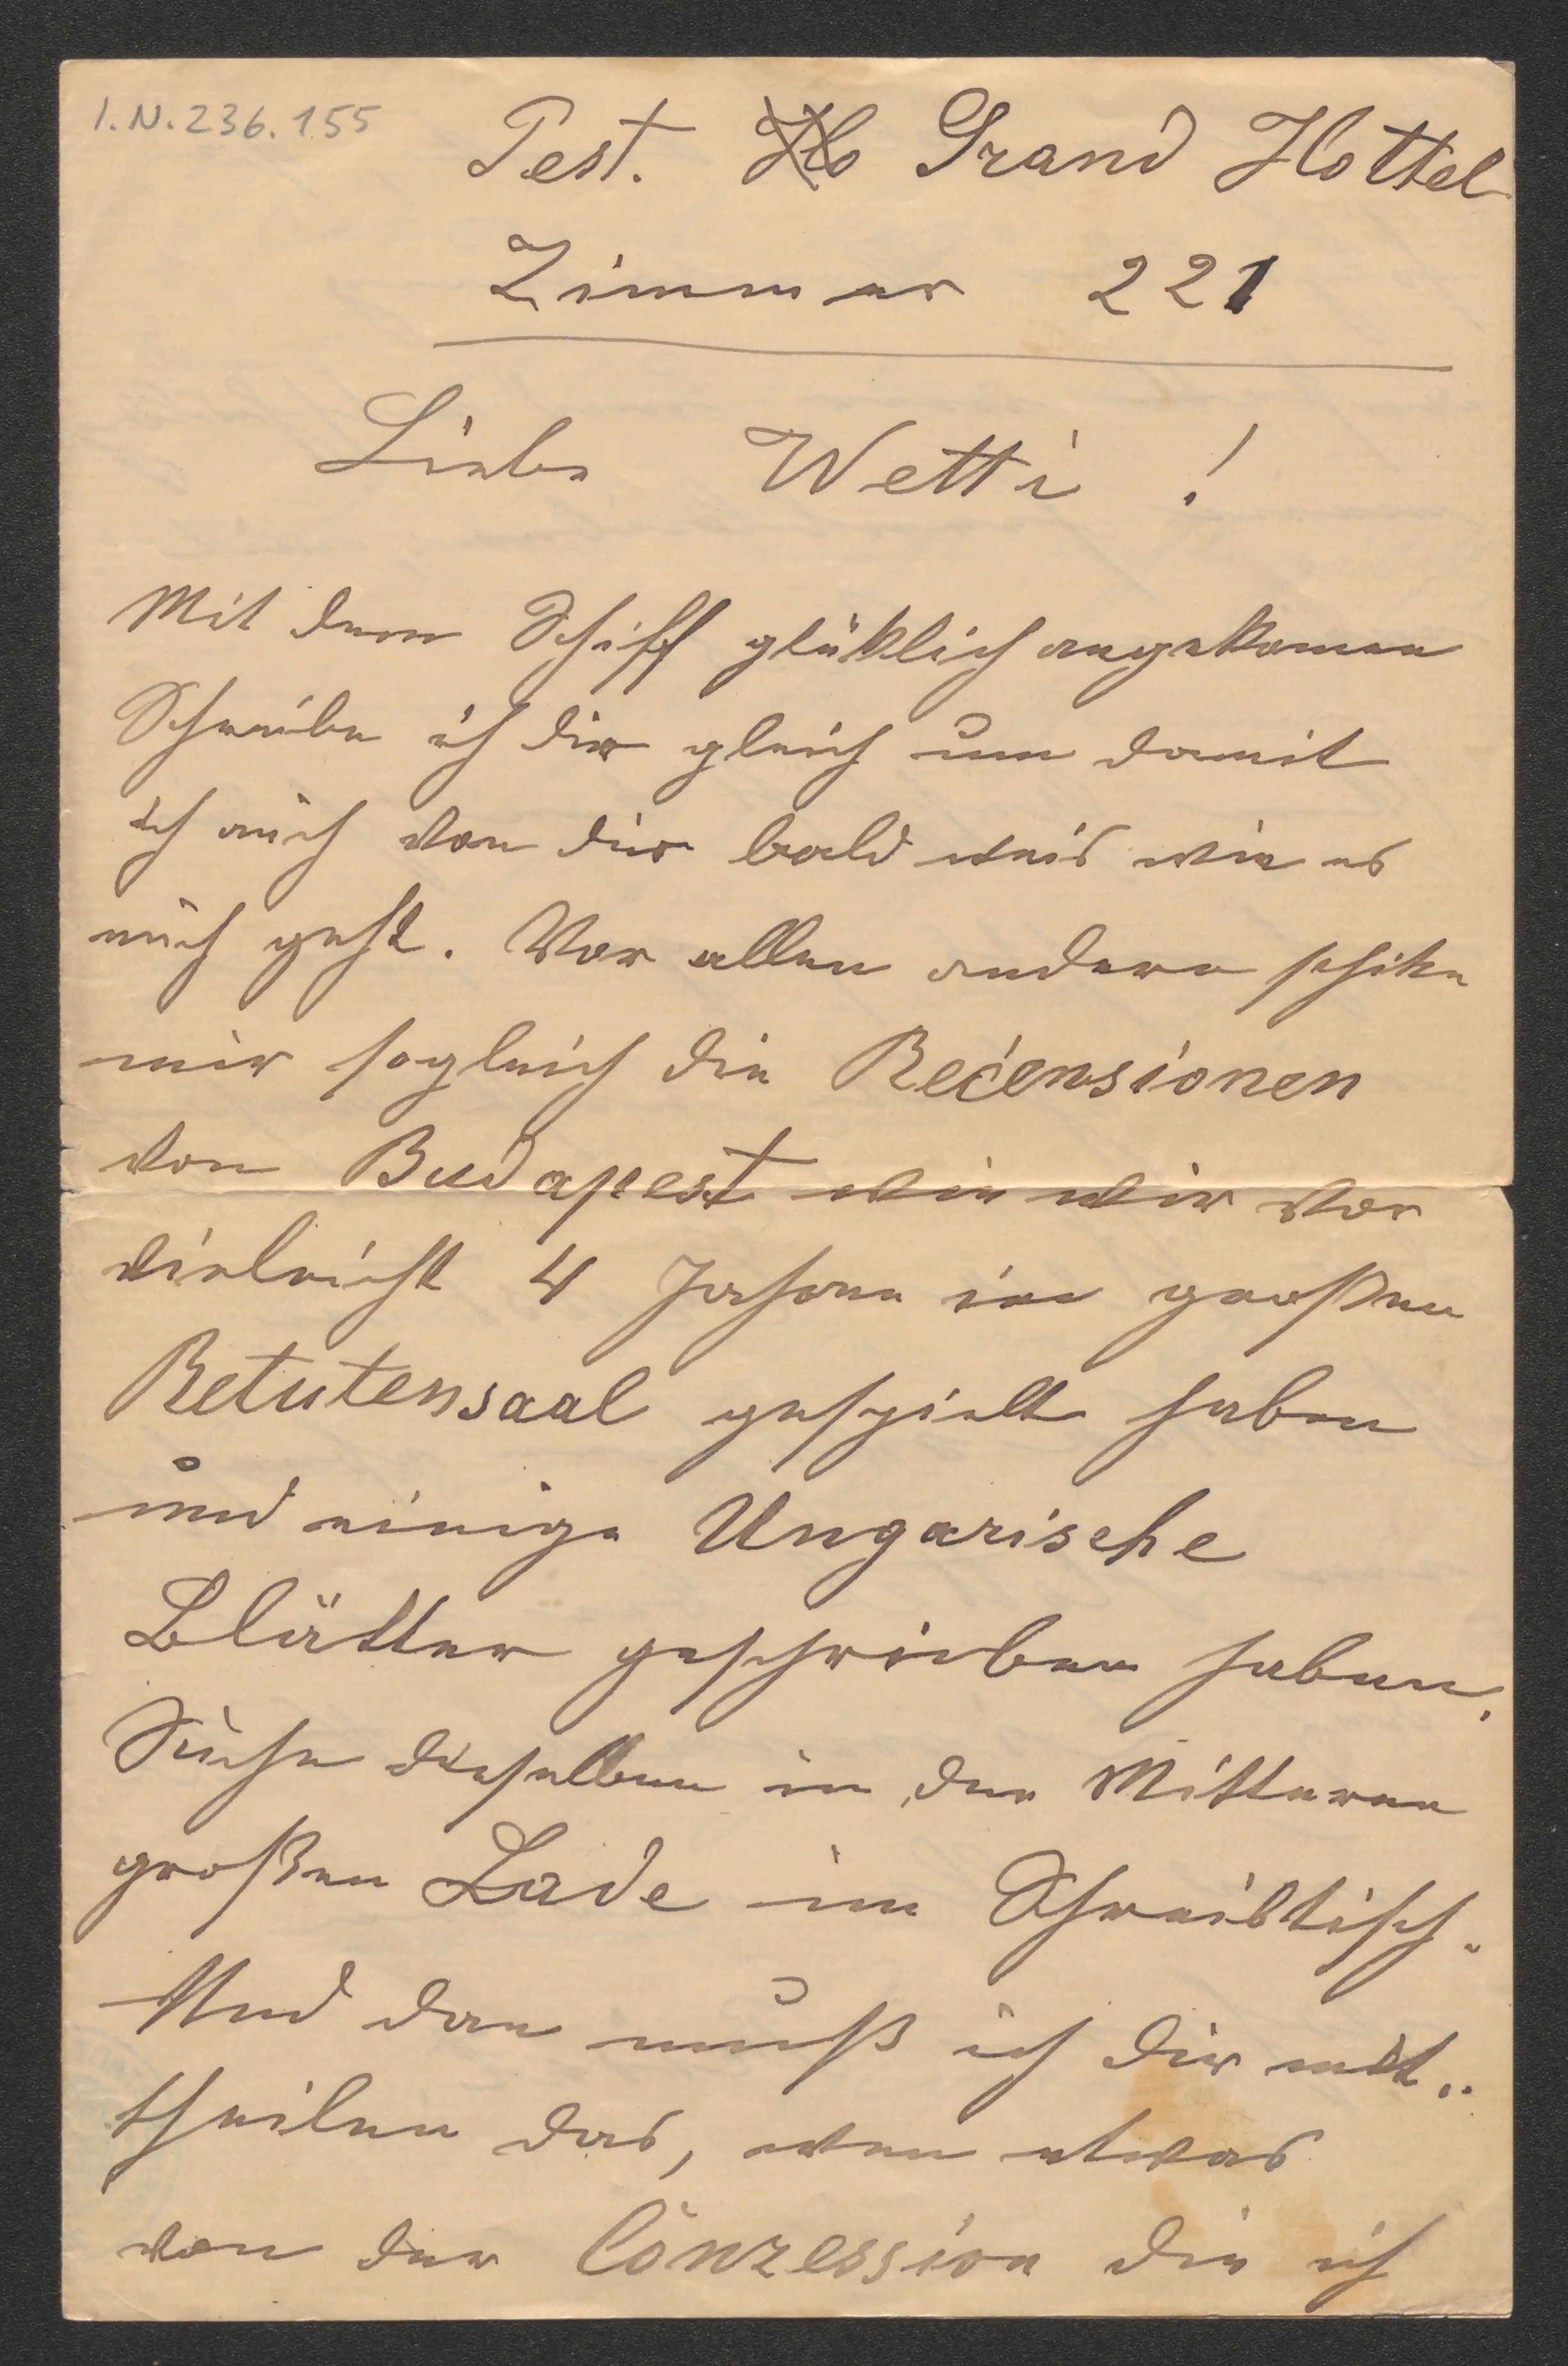 I.N. 236.155
Pest. Ho Grand Hottel
Zimmer 221
Liebe Wetti !
Mit dem Schiff glüklich angekomen
Schreibe ich dir gleich um damit
ich auch von dir bald weis wie es
euch geht. Vor allen andern schike
mir sogleich die Recensionen
von Budapest wie wir vor
vieleicht 4 Jahren im großen
Retutensaal gespielt haben
und einige Ungarische
Blätter geschrieben haben.
Suche dieselben in der Mitteren
großen Lade im Schreibtisch.
Und dan muß ich dir mit„
theilen das, wen etwas
von der Conzession die ich